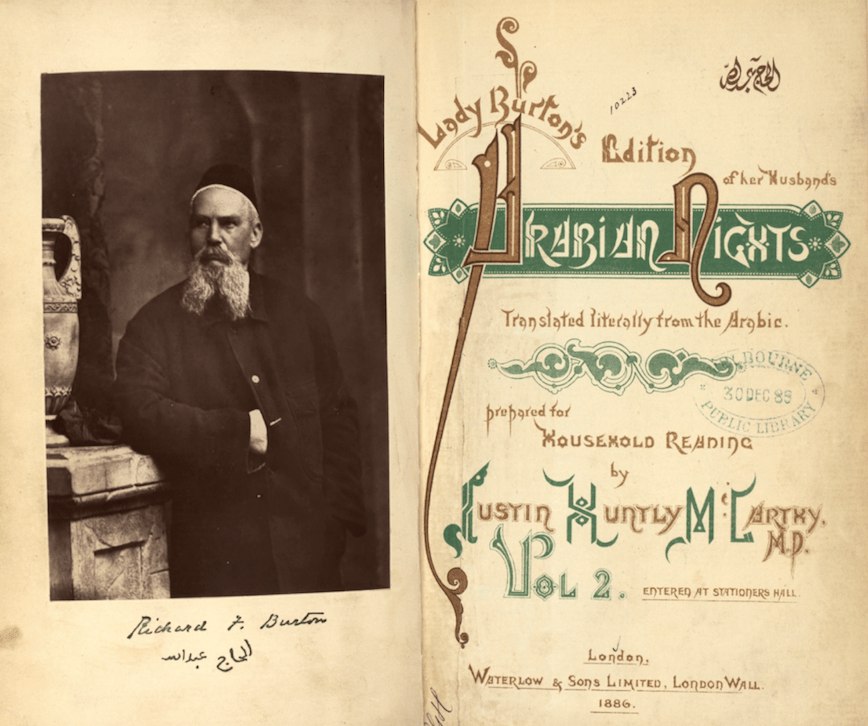 Richard F. Burton
الحاج عبدالله
الحاج عبدالله
10223
Lady Burton's
Edition
of her Husband's
Arabian Nights
Translated literally from the Arabic.
MELBOURNE
30 DEC 88
PUBLIC LIBRARY
prepared for
Household Reading
by
Justin Huntly McCarthy,
M.P.
Vol 2.
ENTERED AT STATIONERS HALL
London.
Waterlow & Sons Limited, London Wall.
1886.